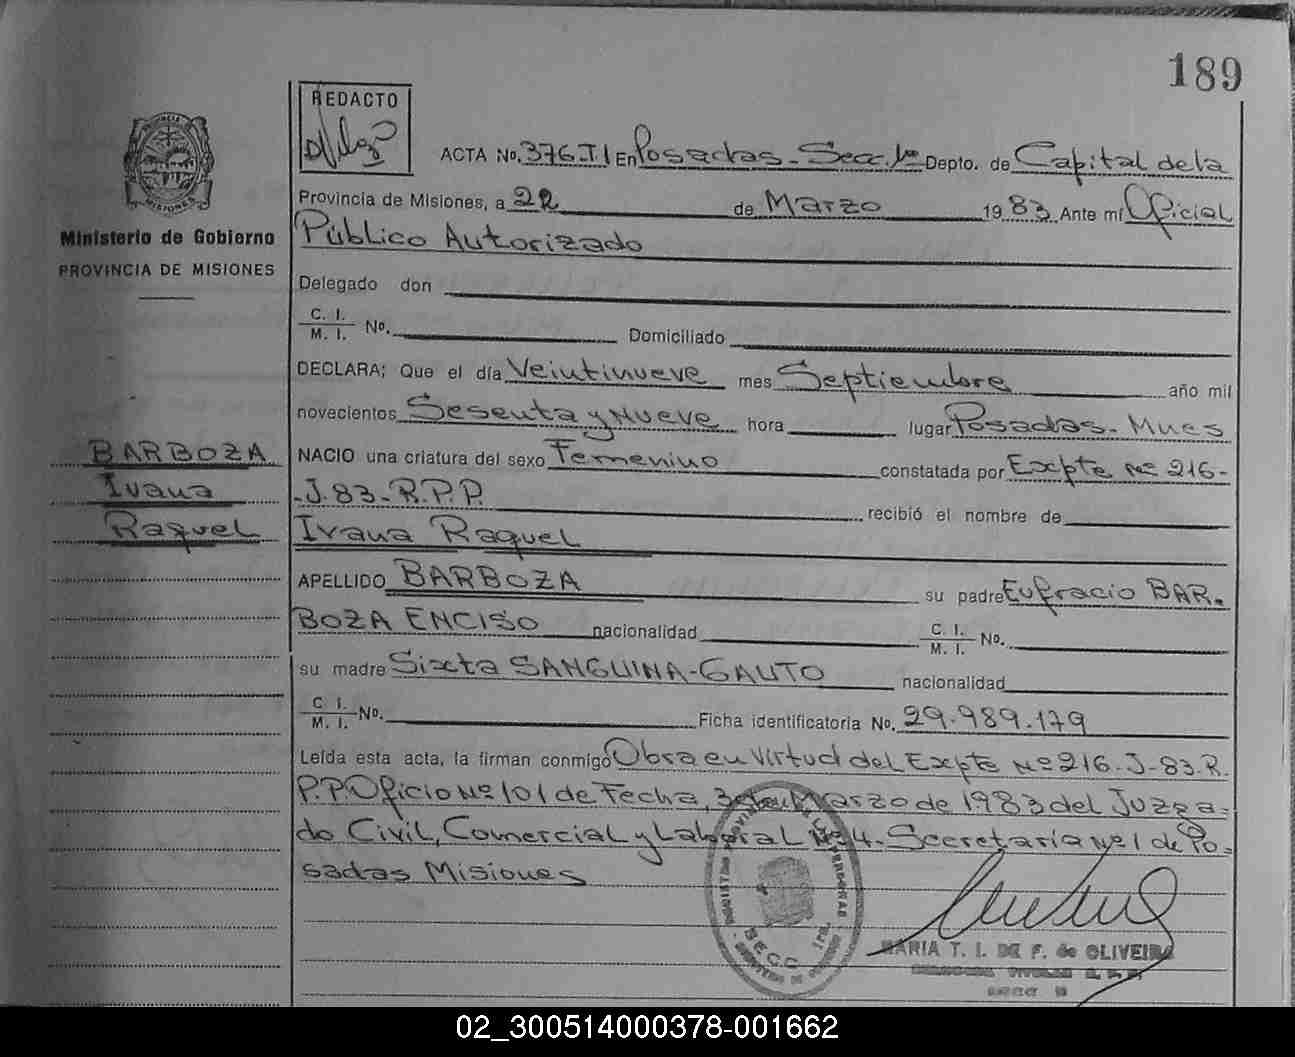 189
REDACTO
ACTA No. 376-TI En Posadas - Secc. 1ª Depto. de Capital de la
Provincia de Misiones, a 22 de Marzo 1983 Ante mí Oficial
Público Autorizado
Ministerio de Gobierno
PROVINCIA DE MISIONES
Delegado don
C. I.
M. I. No. Domiciliado
DECLARA; Que el día Veintinueve mes Septiembre año mil
novecientos Sesenta y Nueve hora lugar Posadas - Mnes
NACIO una criatura del sexo Femenino constatada por Expte Nº 216-
J-83-R.P.P. recibió el nombre de
BARBOZA
Ivana
Raquel
Ivana Raquel
APELLIDO BARBOZA su padre Eufracio BAR-
BOZA ENCISO nacionalidad C. I. M. I. No.
su madre Sixta SANGUINA-GAUTO nacionalidad
C. I. M. I. No. Ficha identificatoria No. 29.989.179
Leída esta acta, la firman conmigo Obra en Virtud del Expte Nº 216-J-83-R.
P.P. Oficio Nº 101 de Fecha, 3 de Marzo de 1983 del Juzga-
do Civil, Comercial y Laboral Nº 4 - Secretaría Nº 1 de Po-
sadas Misiones
SECC. 1ra.
MARIA T. I. DE F. de OLIVEIRA
02_300514000378-001662